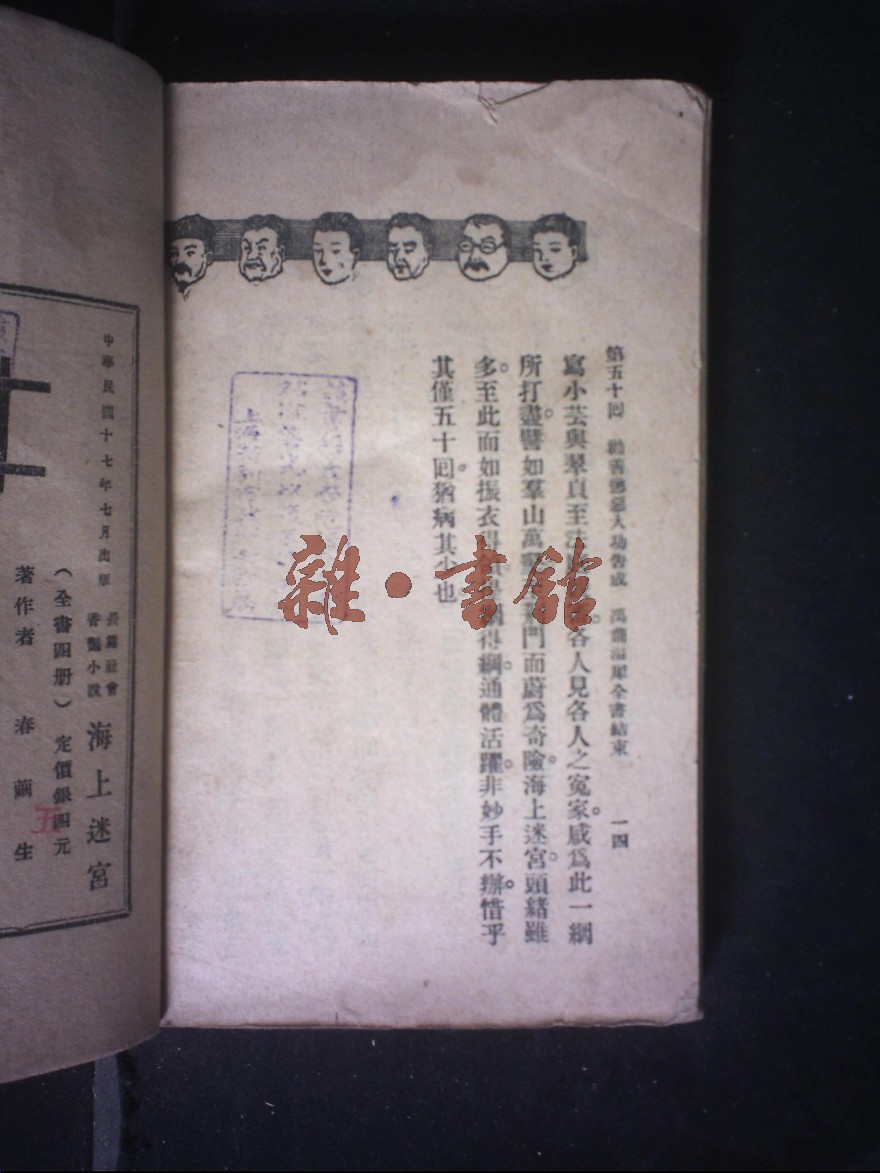 第五十回 勸善懲惡人功告成 禹鼎溫犀全書結束 一四
寫小芸與翠貞至法 各人見各人之冤家。咸爲此一網
所打盡。譬如羣山萬壑 荊門而蔚爲奇險。海上迷宮。頭緒雖
多。至此而如振衣得 得綱。通體活躍。非妙手不辦。惜乎
其僅五十回。猶病其少也
雜·書館
中華民國十七年七月出版
長篇社會
香艷小說
海上迷宮
(全書四册)定價銀四元
五
著作者 春繭生